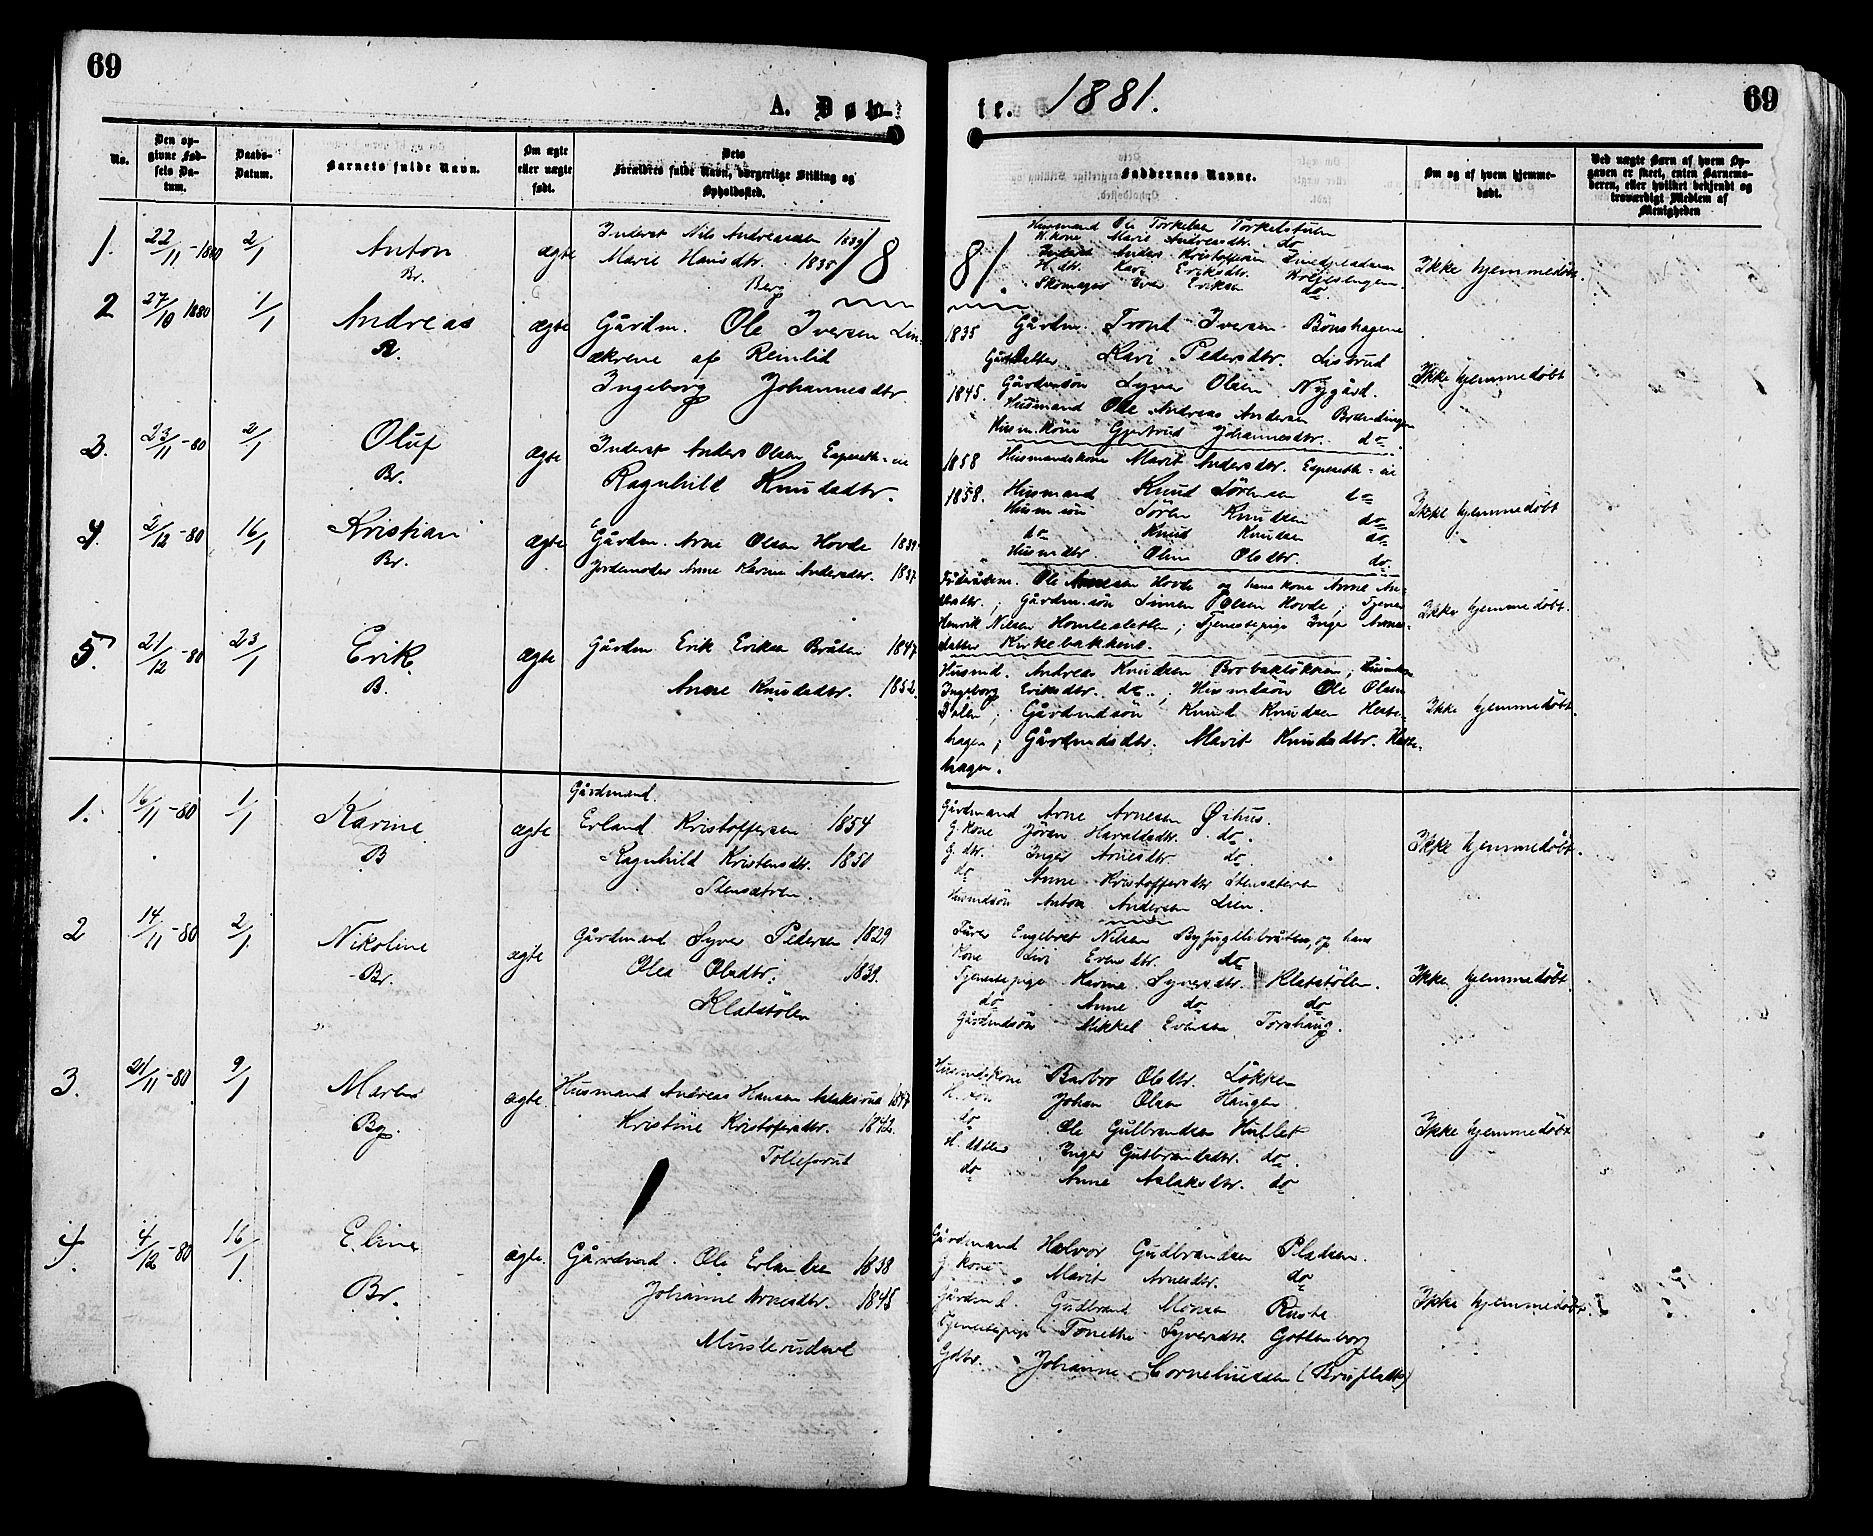 69
A. Døbte.
1881.
69
No.
Den opgivne Fødsels Datum.
Daabs-Datum.
Barnets fulde Navn.
Om ægte eller uægte født.
Dets Forældres fulde Navn, borgerlige Stilling og Opholdssted.
Faddernes Navne.
Om og af hvem hjemmedøbt.
Ved uægte Børn af hvem Opgaven er skeet, enten Barnemoderen, eller hvilket bekjendt og troværdigt Medlem af Menigheden
18
81
1. 22/11-1880 2/1 Anton ægte
Br.
Inderst Nils Andreassen 1839
Marie Hansdtr. 1835
Berg
Husmand Ole Torkelsen Torkelstuen
H. kone Marie Andreasdtr. do
Anders Kristoffersen
H. dtr. Kari Eriksdtr.
Skomager Iver Eriksen do
Ikke hjemmedøbt.
2 27/10 1880 1/1 Andreas ægte
R.
Gårdm. Ole Iversen Lin-
ækrene af Reinlid 1835
Ingeborg Johannesdtr. 1845.
Gårdm. Trond Iversen Bönshagene
Gårddatter Kari Pedersdtr. Lisbrud
Gårdmsön Syver Olsen Nygård.
Husmand Ole Andreas Andersen
Husm.kone Gjertrud Johannesdtr. do
Ikke hjemmedøbt
3. 23/11-80 2/1 Oluf ægte
Br.
Inderst Anders Olsen Espeseth-eie 1858
Ragnhild Knudsdtr. 1858.
Husmandskone Marit Andersdtr. Espeseth-eie
Husmand Knud Sörensen do
Husm sön Sören Knudsen do
do Knud Knudsen do
Husmdtr. Oline Olsdtr. do
Ikke hjemmedøbt
4. 2/12-80 16/1 Kristian ægte
Br.
Gårdm. Arne Olsen Hovde 1839
Jordemoder Anne Karine Andersdtr. 1837
Föderådsm. Ole Arnesen Hovde og hans kone Anne An-
dersdtr.; Gårdm.sön Simen Olsen Hovde; Tjener
Henrik Nilsen Homlesletten; Tjenestepige Inger Arnes-
datter Kirkebakkens.
Ikke hjemmedøbt.
5. 21/12-80 23/1 Erik ægte
B.
Gårdm Erik Eriksen Bråten 1847
Anne Knudsdtr. 1852.
Husmd. Andreas Knudsen Borbakløkken; Husmkone
Ingeborg Eriksdtr. do.; Husmdsön Ole Olsen
Dalen; Gårdmdsön Knud Knudsen Heste-
hagen; Gårdmdsdtr. Marit Knudsdtr. Heste-
hagen.
Ikke hjemmedøbt.
1. 16/11-80 1/1 Karine ægte
B
Gårdmand.
Erland Kristoffersen 1854
Ragnhild Kristensdtr. 1850
Stensætren.
Gårdmand Arne Arnesen Øihus.
G. kone Jöran Haraldsdtr. do.
G. dtr. Inger Arnesdtr do.
do Anne Kristoffersdtr Stensæteren
Husmdsön Anton Andersen Lien.
Ikke hjemmedøbt.
2 14/11-80 2/1 Nikoline ægte
Br.
Gårdmand Syver Pedersen 1829
Olea Olsdtr. 1839.
Klatstölen
Engebret Nilsen og hans
Kone Livi Evensdtr. do
Tjenestepige Karine Syversdtr. Klatstölen.
do Anne do do
Gårdmdsön Mikkel Evensen Torshaug.
Ikke hjemmedøbt.
3. 21/11-80 9/1 Maren ægte
Bg.
Husmand Andreas Hansen Aslaksrud 1847
Kristine Kristofersdtr. 1842.
Tollefsrud
Husmdskone Barbro Olsdtr. Lökken
H. sön Johan Olsen Haugen
do Ole Gulbrandsen Hullet
H. datter Inger Gulbrandsdtr. do.
do Anne Aslaksdtr. do
Ikke hjemmedøbt
4. 4/12-80 16/1 Eline ægte
Br.
Gårdmd. Ole Erlandsen 1838
Johanne Arnesdtr. 1845
Muslerudmd
Gårdmand Halvor Gudbrandsen Pladsen.
G. kone Marit Arnesdtr. do
Gårdmd. Gudbrand Monsen Ruste
Tjenestepige Tonethe Syversdtr. Gottenborg
Gdbr. Johanne Corneliussen (Bruflatts)
Ikke hjemmedøbt.